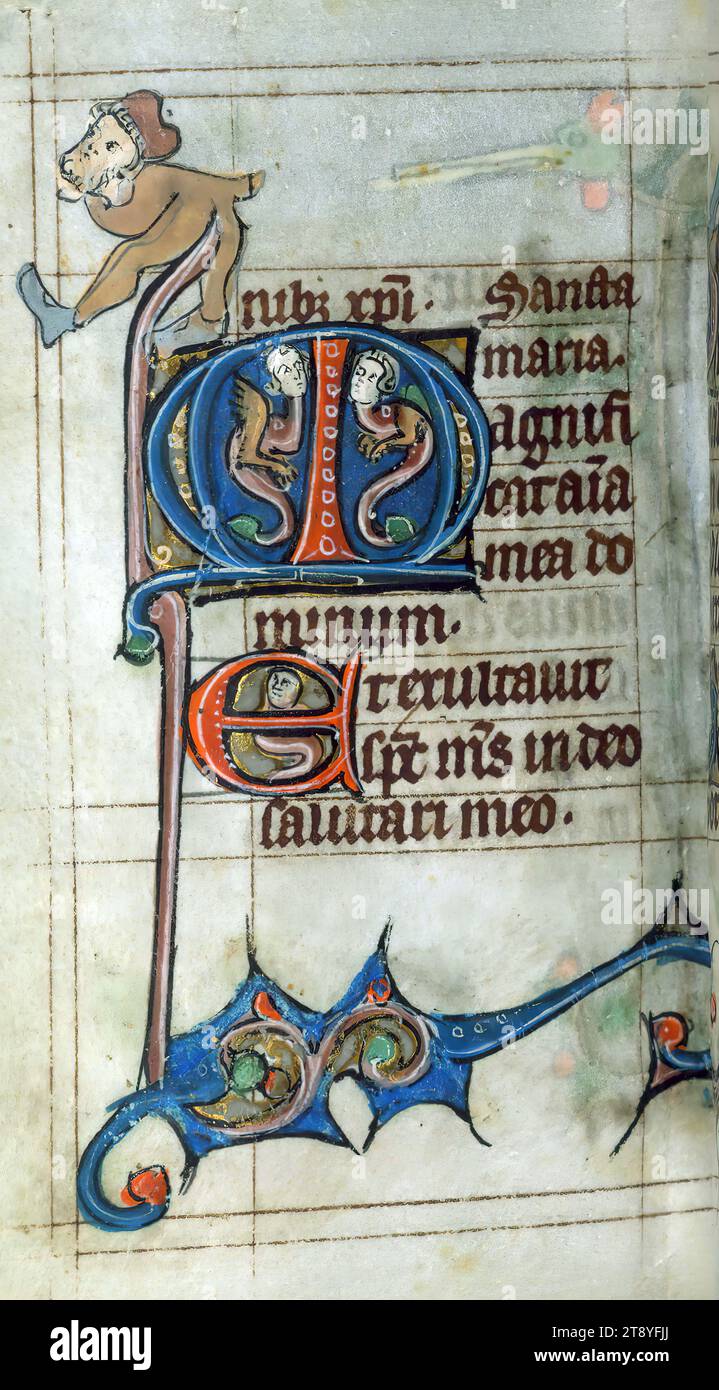 nibꝫ xp̄i. Sancta
maria.
Magnifi
cat aīa
mea do
minum.
Et exultauit
sp̄c m̄s in deo
salutari meo.
alamy
Image ID: 2T8YFJJ
www.alamy.com